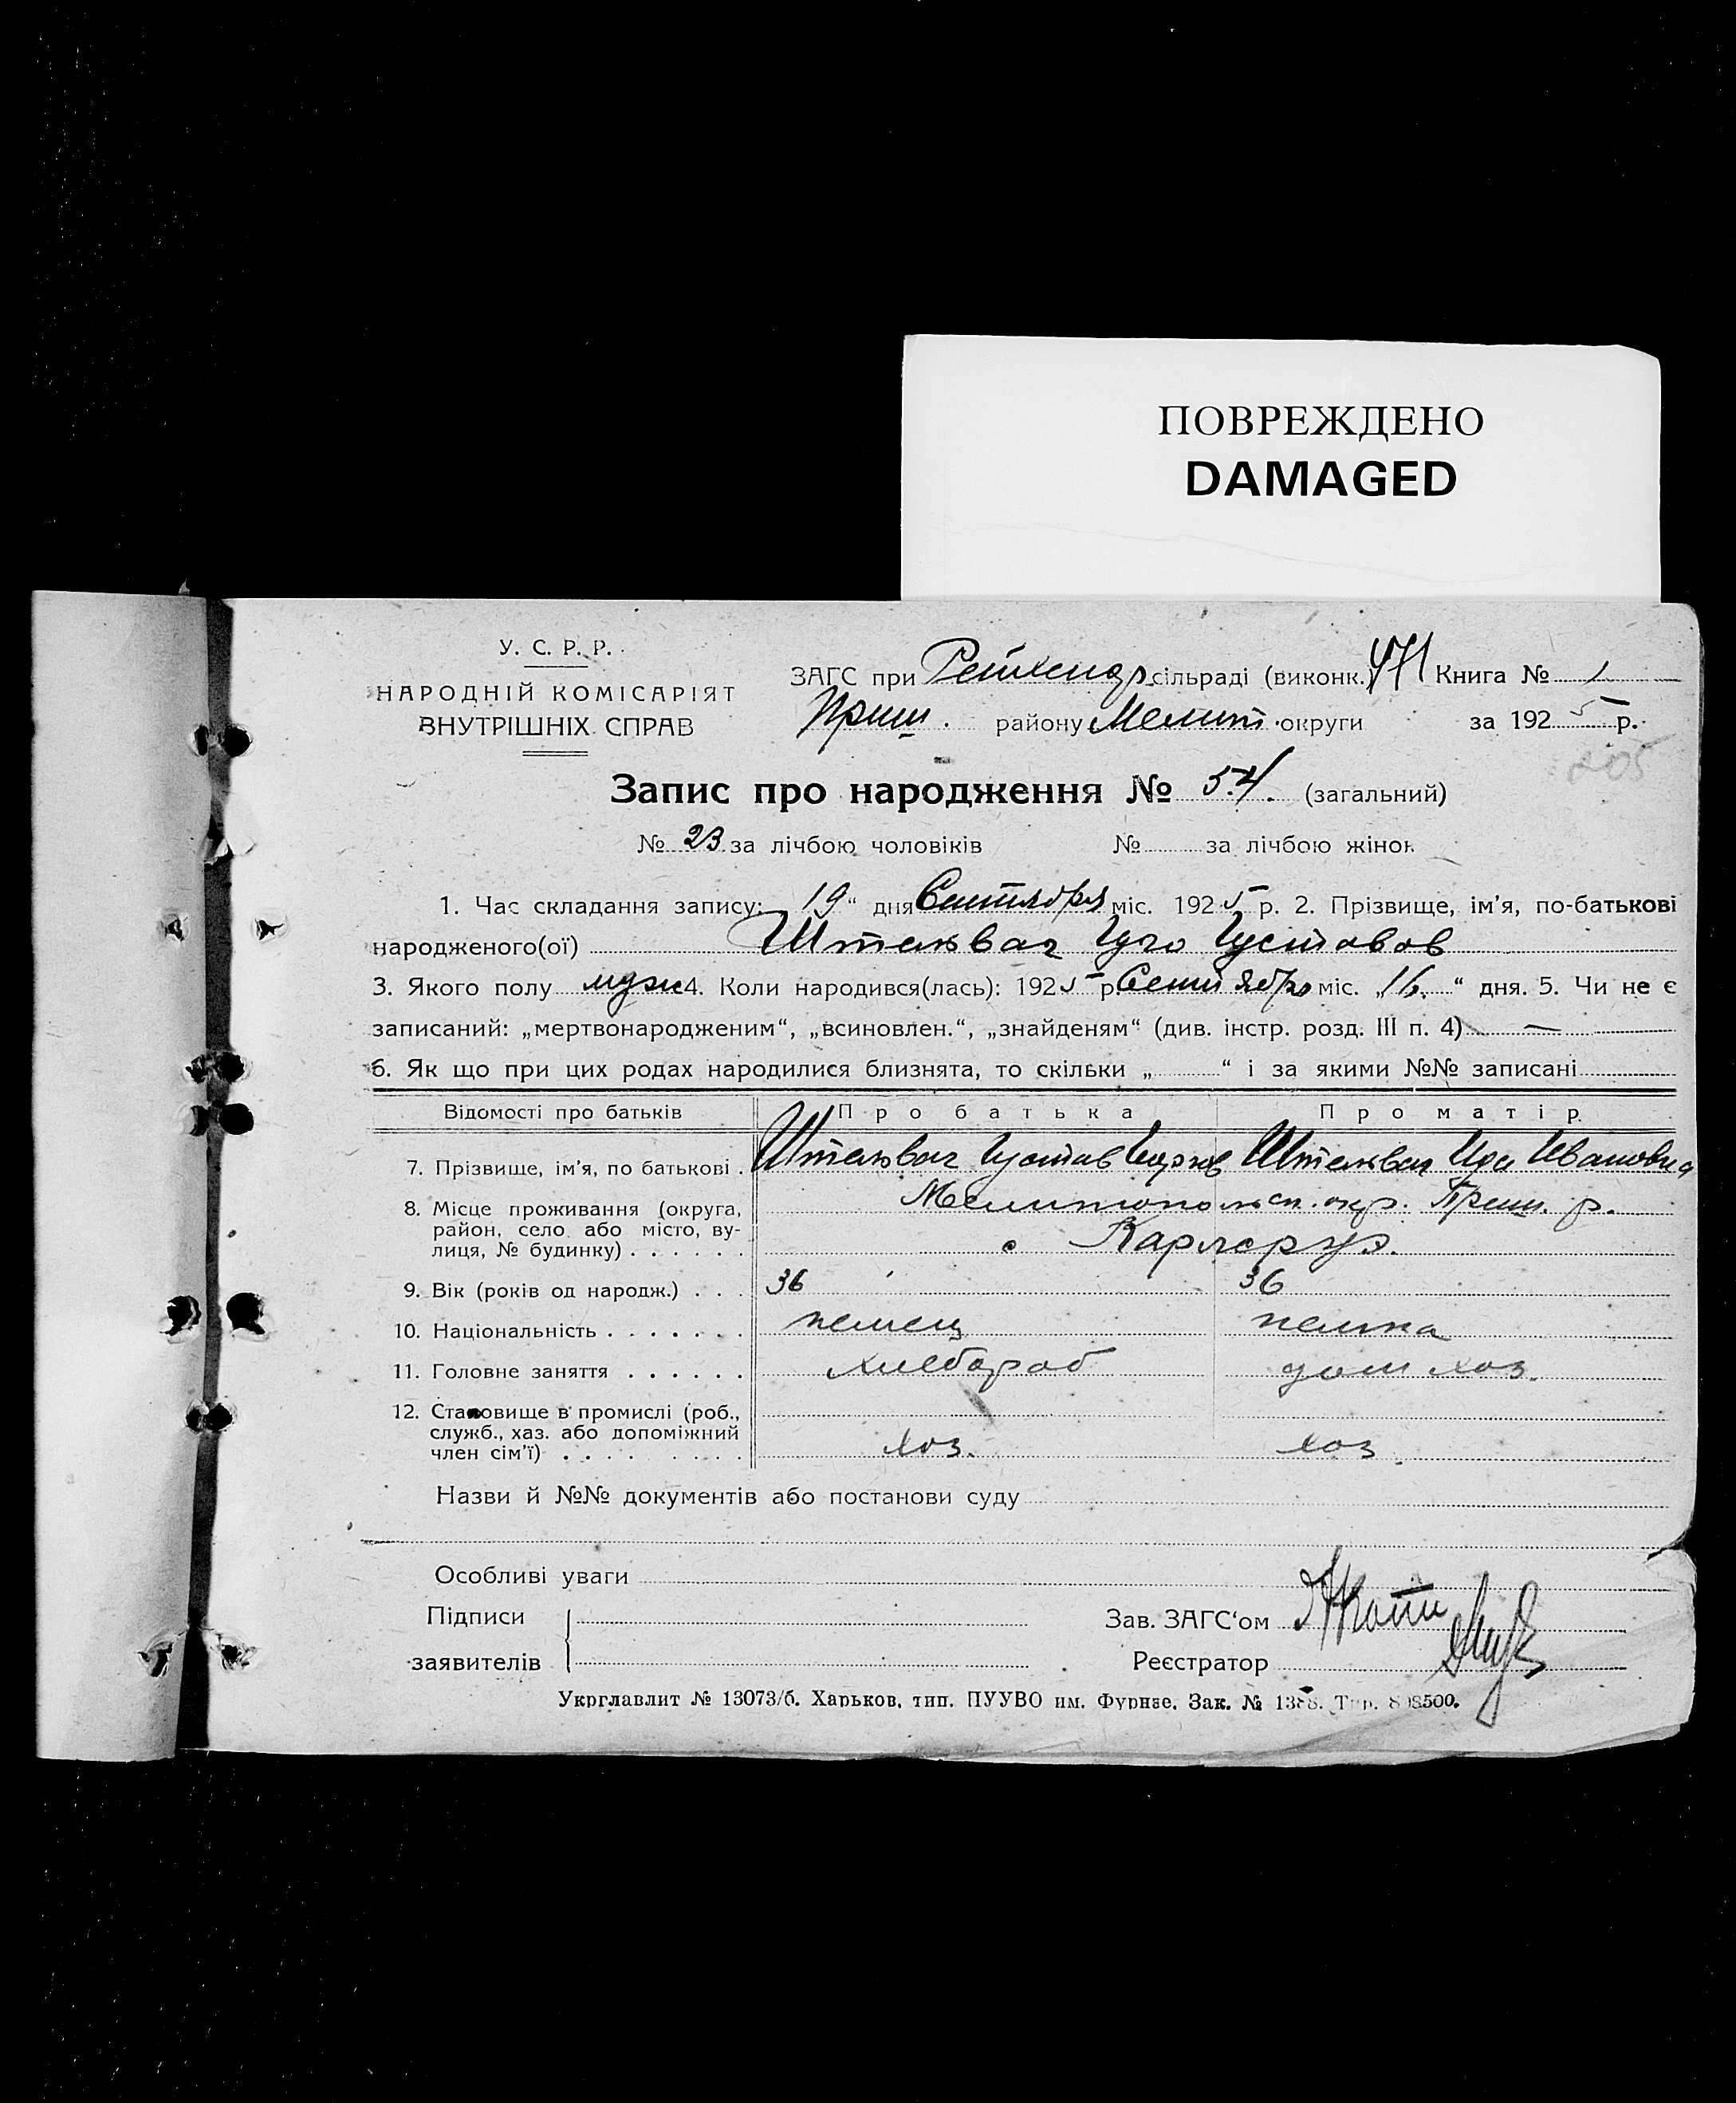 ПОВРЕЖДЕНО
DAMAGED
У. С. Р. Р.
НАРОДНІЙ КОМІСАРІЯТ
ВНУТРІШНІХ СПРАВ
ЗАГС при Рейхенф. сільраді (виконк.) 471 Книга № 1
Приш. району Мелит. округи за 1925 р.
205
Запис про народження № 54. (загальний)
№ 23 за лічбою чоловіків № за лічбою жінок
1. Час складання запису: 19“ дня Сентября міс. 1925 р. 2. Прізвище, ім'я, по-батькові
народженого(ої) Штельвач Гуго Густавов
3. Якого полу муж 4. Коли народився(лась): 1925 р. Сентября міс. „16.“ дня. 5. Чи не є
записаний: „мертвонародженим“, „всиновлен.“, „знайденям“ (див. інстр. розд. III п. 4) —
6. Як що при цих родах народилися близнята, то скільки „ “ і за якими №№ записані
Відомості про батьків Про батька Про матір
7. Прізвище, ім'я, по батькові . Штельвач Густав Штельвач Ида Ивановна
8. Місце проживання (округа, район, село або місто, вулиця, № будинку) . . . . . . Мелитопольск. окр. Приш. р.
с Карлсруэ.
9. Вік (років од народж.) . . . 36 36
10. Національність . . . . . . . немец немка
11. Головне заняття . . . . . . хлебораб дом хоз.
12. Становище в промислі (роб.,
служб., хаз. або допоміжний
член сім'ї) . . . . . . . . хоз. хоз
Назви й №№ документів або постанови суду
Особливі уваги
Підписи
заявителів
Зав. ЗАГС'ом
Реєстратор
Укрглавлит № 13073/б. Харьков, тип. ПУУВО им. Фрунзе. Зак. №